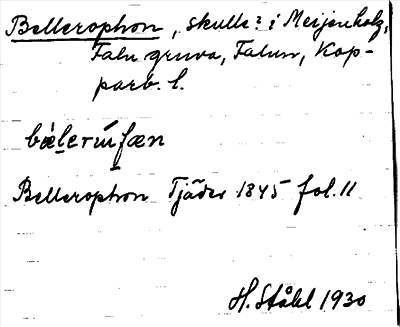 Bellerophon, skulle? i Meijenholz,
Falu gruva, Falun, Kop-
parb. l.
bèlerıùfæn
Bellerophon Tjäder 1845 fol. 11
H. Ståhl 1930